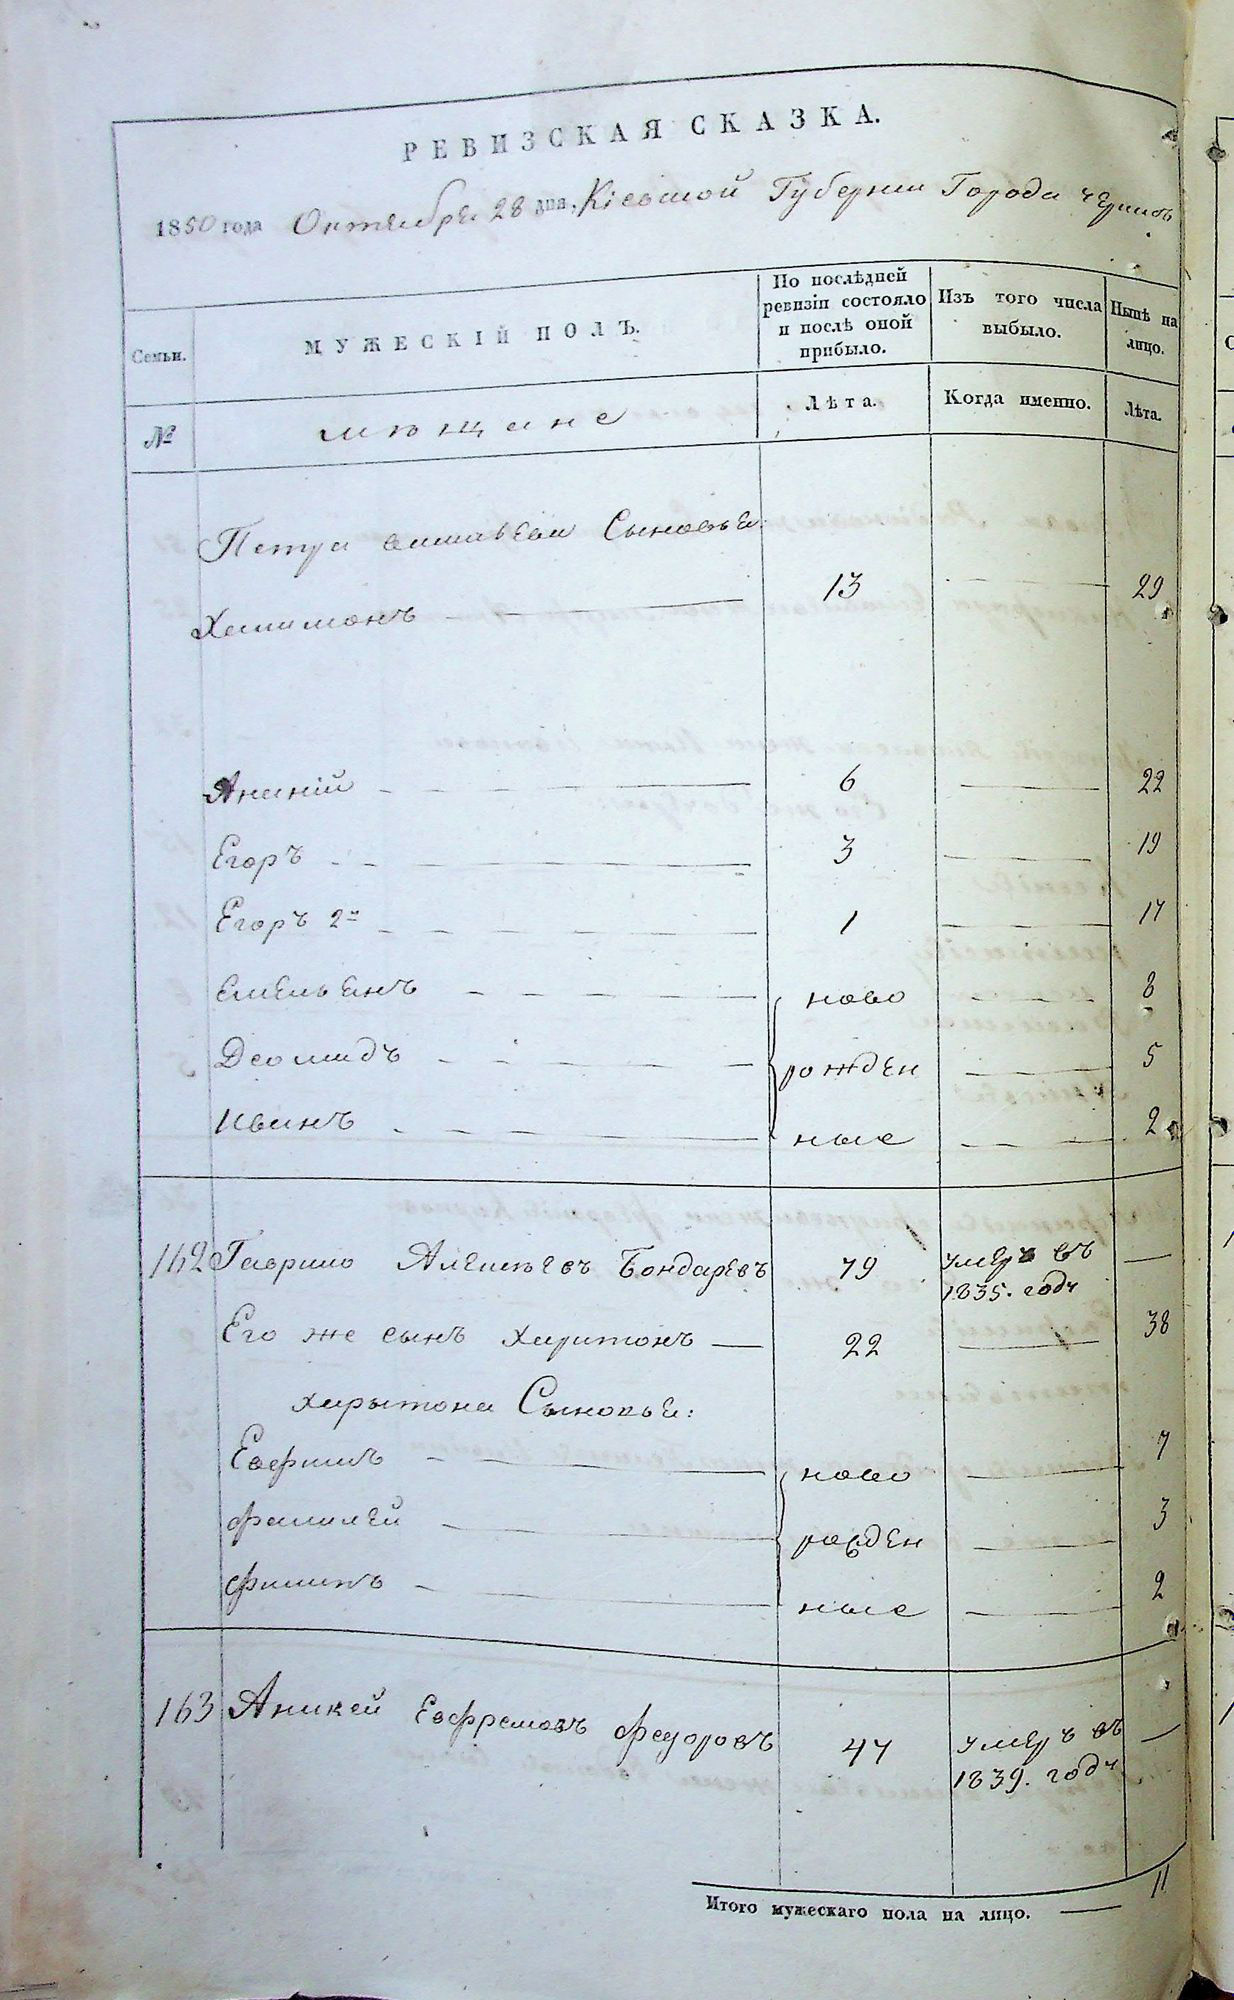 РЕВИЗСКАЯ СКАЗКА.
1850 года Октября 28 дня, Кіевской Губерніи Города
Семьи. МУЖЕСКІЙ ПОЛЪ. По послѣдней ревизіи состояло и послѣ оной прибыло. Изъ того числа выбыло. Нынѣ на лицо.
№ мѣщане Лѣта. Когда именно. Лѣта.
Петра Сыновья:
13 29
Ананій 6 22
Егоръ 3 19
Егоръ 2й 1 17
Емельянъ ново 8
Деомидъ рожден 5
Иванъ ные 2
162 Гаврило Алексѣевъ Бондаревъ 79 умеръ въ 1835. годѣ
Его же сынъ Харитонъ 22 38
Харытона Сыновья:
Евфимъ ново 7
Фалилей рожден 3
Филипъ ные 2
163 Аникей Евфремовъ Федоровъ 47 умеръ въ 1839. годѣ
Итого мужескаго пола на лицо. 11